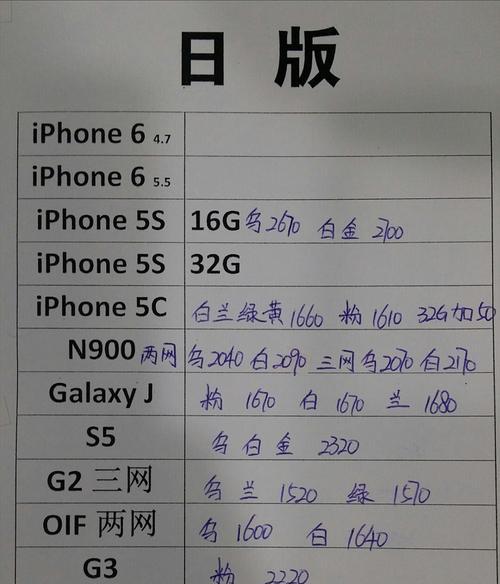 日 版
iPhone 6 4.7
iPhone 6 5.5
iPhone 5S 16G 乌2670 白金 2700
iPhone 5S 32G
iPhone 5C 白兰绿黄1660 粉1610 32G加50
N900 两网 乌2040 白2090 三网乌2070 白2170
Galaxy J 粉 1670 白 1670 兰 1680
S5 乌白金 2320
G2 三网 乌兰 1520 绿 1570
OIF 两网 乌 1600 白 1640
G3 粉 2220